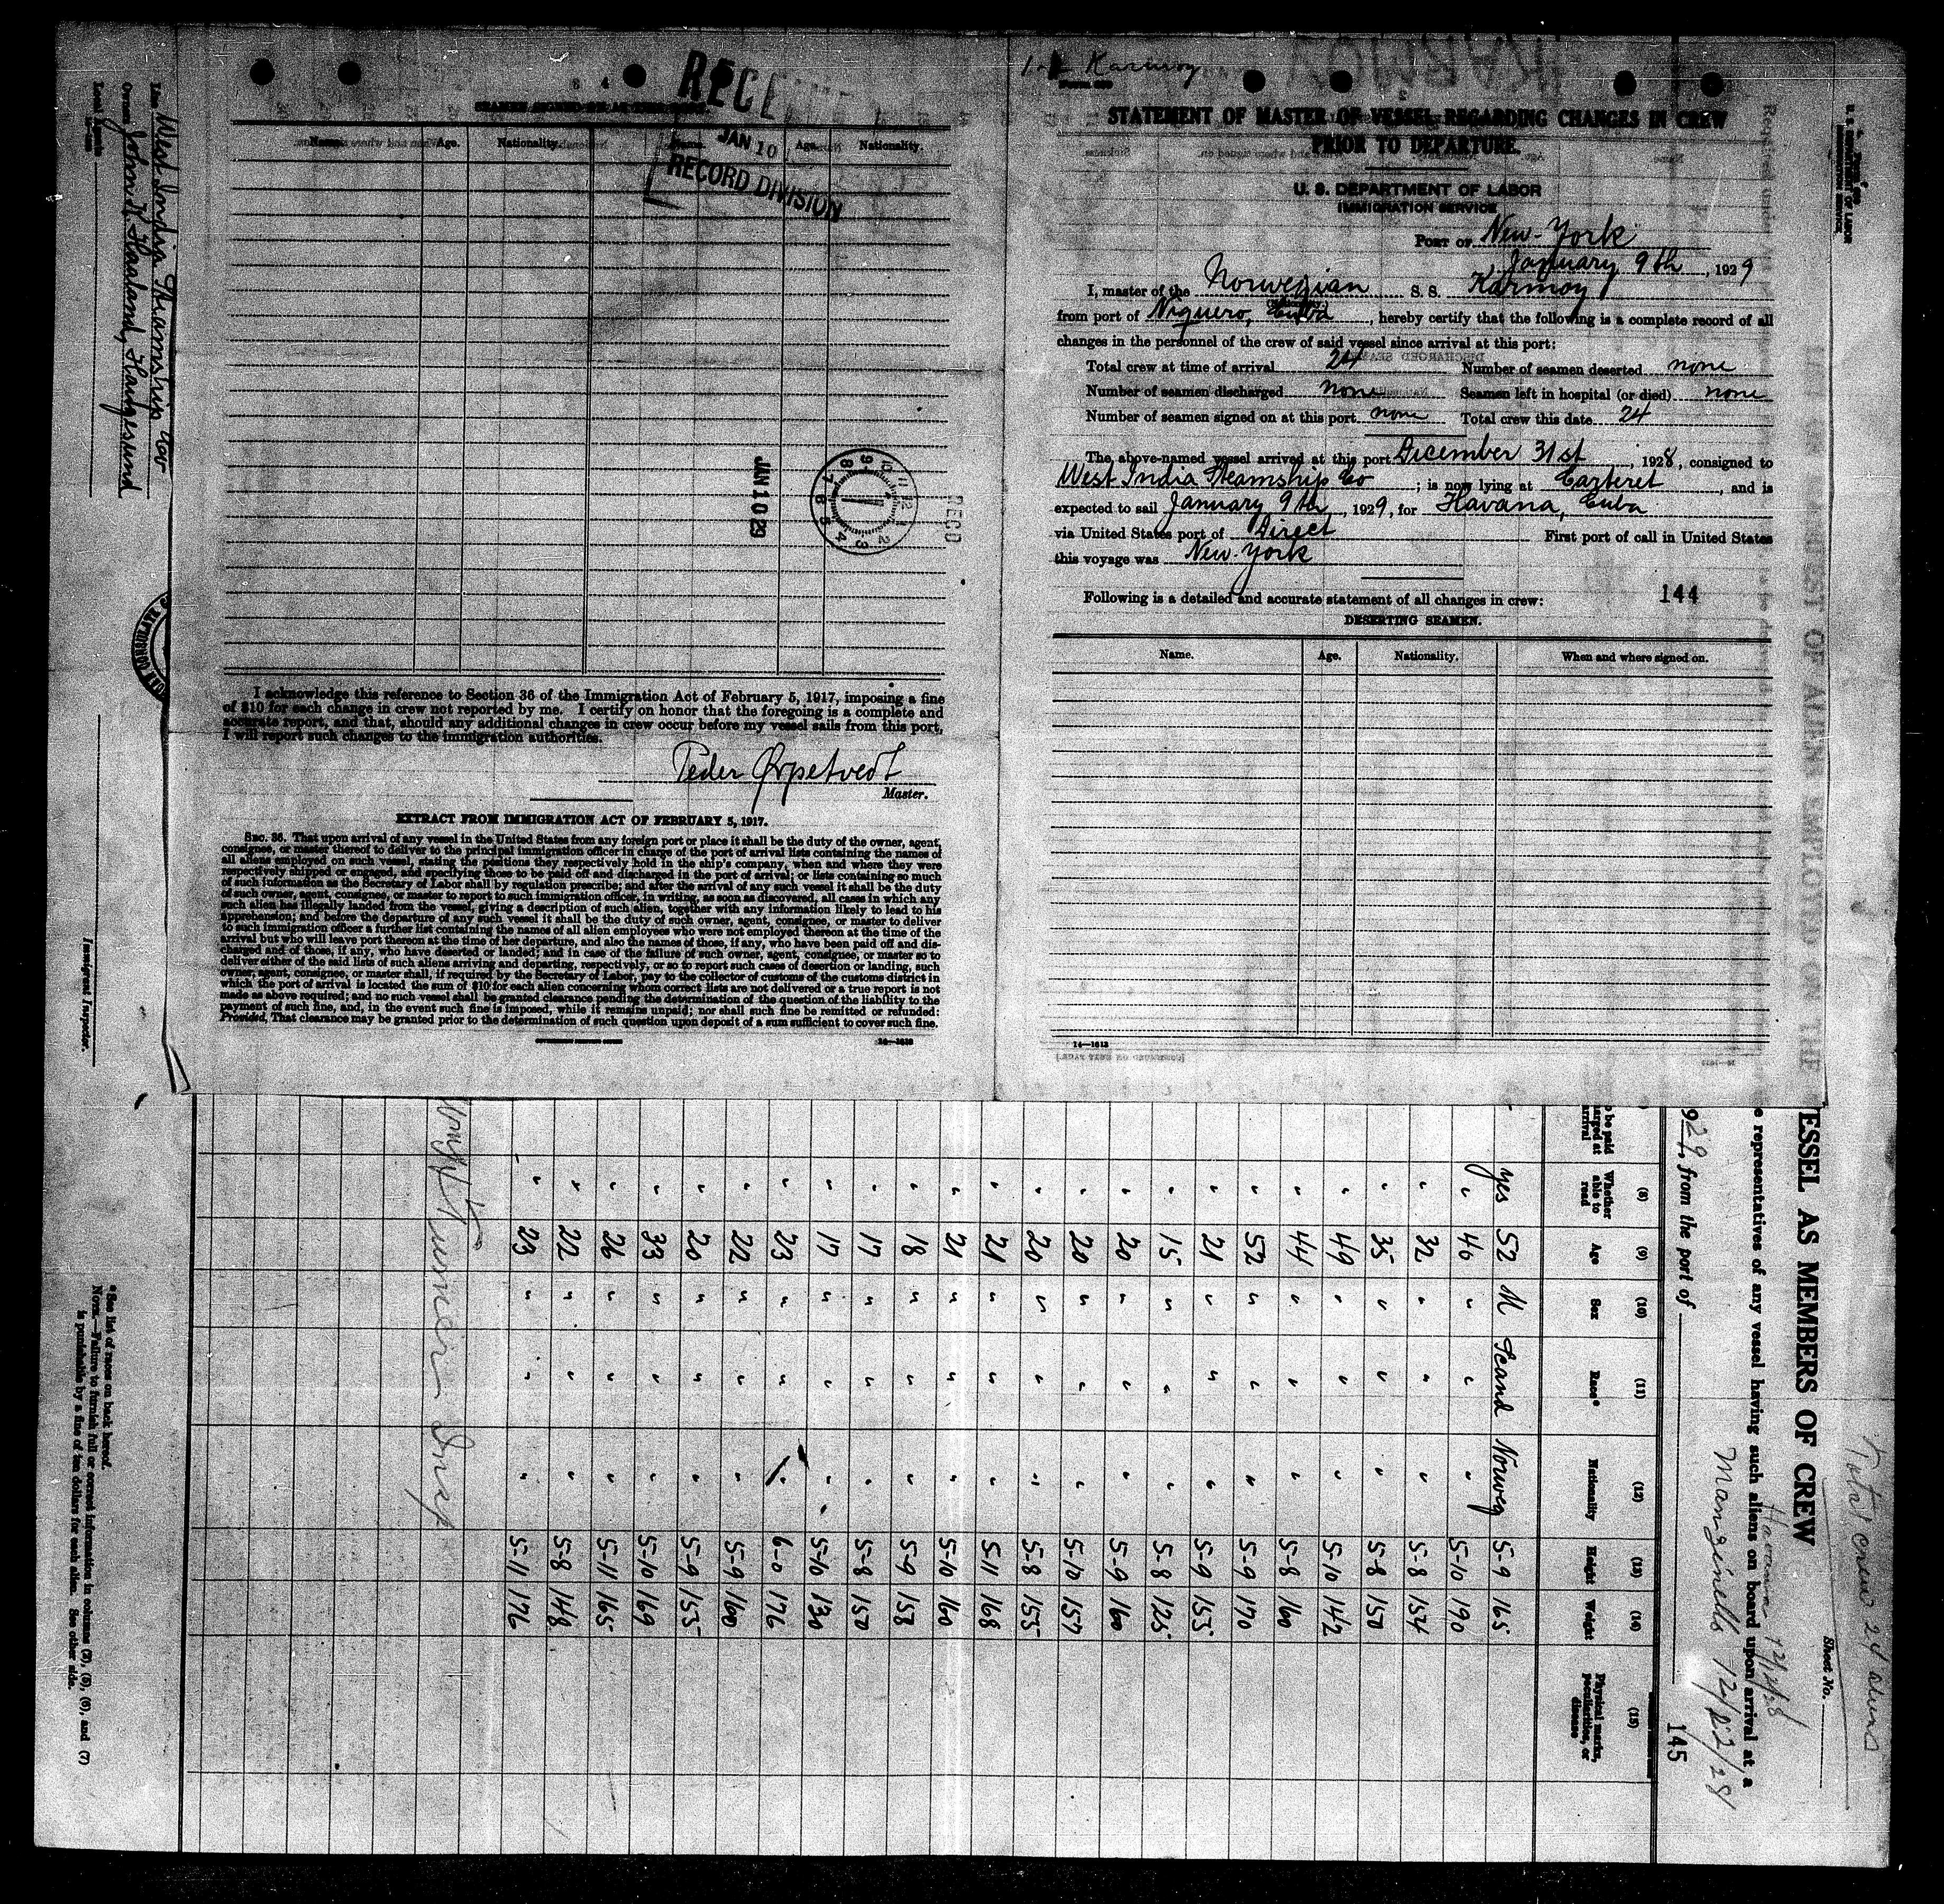 RECE
JAN 10
RECORD DIVISION
Name. Age. Nationality. Name. Age. Nationality.
JAN 10 29
REC'D
I acknowledge this reference to Section 36 of the Immigration Act of February 5, 1917, imposing a fine
of $10 for each change in crew not reported by me. I certify on honor that the foregoing is a complete and
accurate report, and that, should any additional changes in crew occur before my vessel sails from this port,
I will report such changes to the immigration authorities.
Peder Ørpetvedt
Master.
EXTRACT FROM IMMIGRATION ACT OF FEBRUARY 5, 1917.
SEC. 36. That upon arrival of any vessel in the United States from any foreign port or place it shall be the duty of the owner, agent,
consignee, or master thereof to deliver to the principal immigration officer in charge of the port of arrival lists containing the names of
all aliens employed on such vessel, stating the positions they respectively hold in the ship's company, when and where they were
respectively shipped or engaged, and specifying those to be paid off and discharged in the port of arrival; or lists containing so much
of such information as the Secretary of Labor shall by regulation prescribe; and after the arrival of any such vessel it shall be the duty
of such owner, agent, consignee, or master to report to such immigration officer, in writing, as soon as discovered, all cases in which any
such alien has illegally landed from the vessel, giving a description of such alien, together with any information likely to lead to his
apprehension; and before the departure of any such vessel it shall be the duty of such owner, agent, consignee, or master to deliver
to such immigration officer a further list containing the names of all alien employees who were not employed thereon at the time of the
arrival but who will leave port thereon at the time of her departure, and also the names of those, if any, who have been paid off and dis-
charged and of those, if any, who have deserted or landed; and in case of the failure of such owner, agent, consignee, or master so to
deliver either of the said lists of such aliens arriving and departing, respectively, or so to report such cases of desertion or landing, such
owner, agent, consignee, or master shall, if required by the Secretary of Labor, pay to the collector of customs of the customs district in
which the port of arrival is located the sum of $10 for each alien concerning whom correct lists are not delivered or a true report is not
made as above required; and no such vessel shall be granted clearance pending the determination of the question of the liability to the
payment of such fine, and, in the event such fine is imposed, while it remains unpaid; nor shall such fine be remitted or refunded:
Provided, That clearance may be granted prior to the determination of such question upon deposit of a sum sufficient to cover such fine.
Karmoy
STATEMENT OF MASTER OF VESSEL REGARDING CHANGES IN CREW
PRIOR TO DEPARTURE.
U. S. DEPARTMENT OF LABOR
IMMIGRATION SERVICE
PORT OF New-York
January 9th, 1929
I, master of the Norwegian S. S. Karmoy
from port of Niquero, Cuba, hereby certify that the following is a complete record of all
changes in the personnel of the crew of said vessel since arrival at this port:
Total crew at time of arrival 24 Number of seamen deserted none
Number of seamen discharged none Seamen left in hospital (or died) none
Number of seamen signed on at this port none Total crew this date 24
The above-named vessel arrived at this port December 31st, 1928, consigned to
West India Steamship Co; is now lying at Carteret, and is
expected to sail January 9th, 1929, for Havana, Cuba
via United States port of Direct First port of call in United States
this voyage was New-York
Following is a detailed and accurate statement of all changes in crew: 144
DESERTING SEAMEN.
Name. Age. Nationality. When and where signed on.
14—1613
Line West India Steamship Co
Owners John K Haaland, Haugesund
Local Agents
Immigrant Inspector.
Total crew 24
Sheet No.
ESSEL AS MEMBERS OF CREW
e representatives of any vessel having such aliens on board upon arrival at a
929, from the port of
Manzinello 12/22/28
145
(8) (9) (10) (11) (12) (13) (14) (15)
Whether able to read Age Sex Race* Nationality Height Weight Physical marks, peculiarities, or disease
yes 52 M Scand Norweg 5-9 165
" 40 " " " 5-10 190
" 32 " " " 5-8 154
" 35 " " " 5-8 150
" 49 " " " 5-10 142
" 44 " " " 5-8 160
" 52 " " " 5-9 170
" 21 " " " 5-9 155
" 15 " " " 5-8 125
" 20 " " " 5-9 160
" 20 " " " 5-10 157
" 20 " " " 5-8 155
" 21 " " " 5-11 168
" 21 " " " 5-10 160
" 18 " " " 5-9 153
" 17 " " " 5-8 150
" 17 " " " 5-10 130
" 23 " " " 6-0 176
" 22 " " " 5-9 160
" 20 " " " 5-9 155
" 33 " " " 5-10 169
" 26 " " " 5-11 165
" 22 " " " 5-8 148
" 23 " " " 5-11 176
*See list of races on back hereof.
NOTE.—Failure to furnish full or correct information in columns (3), (5), (6), and (7)
is punishable by a fine of ten dollars for each alien. See other side.